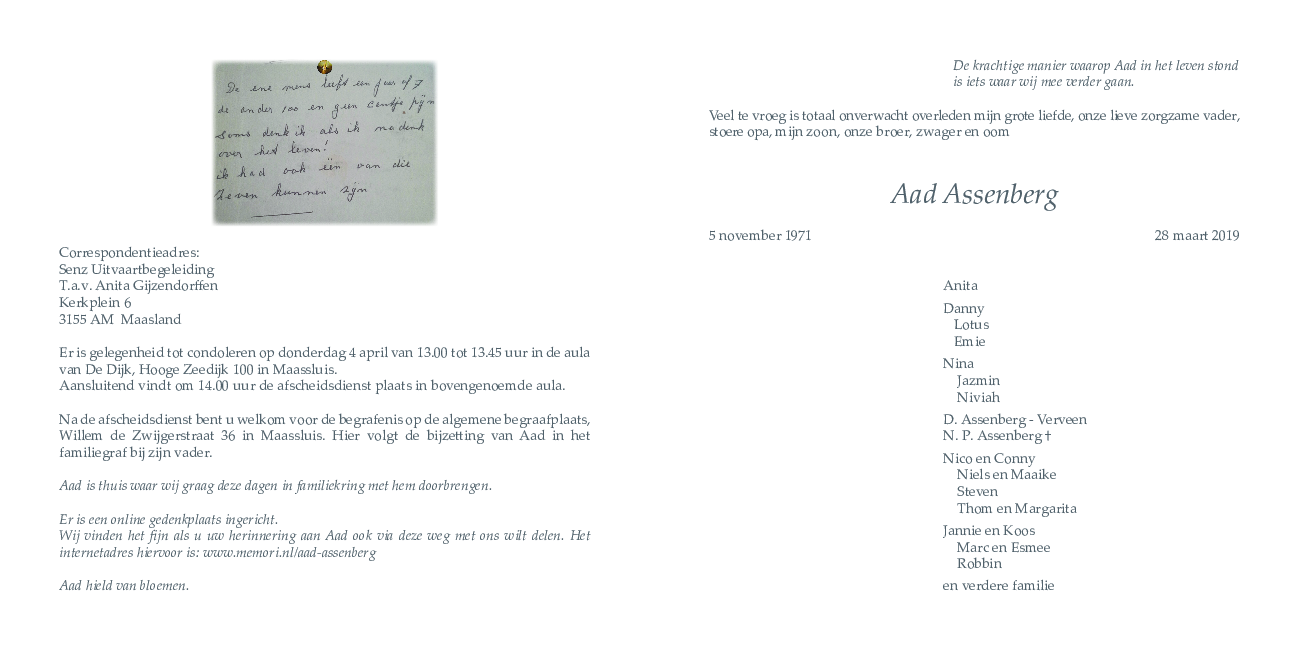 De ene mens leeft een jaar of 7
de ander 100 en geen centje pijn
soms denk ik als ik nadenk
over het leven!
ik had ook één van die
zeven kunnen zijn
Correspondentieadres:
Senz Uitvaartbegeleiding
T.a.v. Anita Gijzendorffen
Kerkplein 6
3155 AM Maasland
Er is gelegenheid tot condoleren op donderdag 4 april van 13.00 tot 13.45 uur in de aula
van De Dijk, Hooge Zeedijk 100 in Maassluis.
Aansluitend vindt om 14.00 uur de afscheidsdienst plaats in bovengenoemde aula.
Na de afscheidsdienst bent u welkom voor de begrafenis op de algemene begraafplaats,
Willem de Zwijgerstraat 36 in Maassluis. Hier volgt de bijzetting van Aad in het
familiegraf bij zijn vader.
Aad is thuis waar wij graag deze dagen in familiekring met hem doorbrengen.
Er is een online gedenkplaats ingericht.
Wij vinden het fijn als u uw herinnering aan Aad ook via deze weg met ons wilt delen. Het
internetadres hiervoor is: www.memori.nl/aad-assenberg
Aad hield van bloemen.
De krachtige manier waarop Aad in het leven stond
is iets waar wij mee verder gaan.
Veel te vroeg is totaal onverwacht overleden mijn grote liefde, onze lieve zorgzame vader,
stoere opa, mijn zoon, onze broer, zwager en oom
Aad Assenberg
5 november 1971 28 maart 2019
Anita
Danny
Lotus
Emie
Nina
Jazmin
Niviah
D. Assenberg - Verveen
N. P. Assenberg †
Nico en Conny
Niels en Maaike
Steven
Thom en Margarita
Jannie en Koos
Marc en Esmee
Robbin
en verdere familie